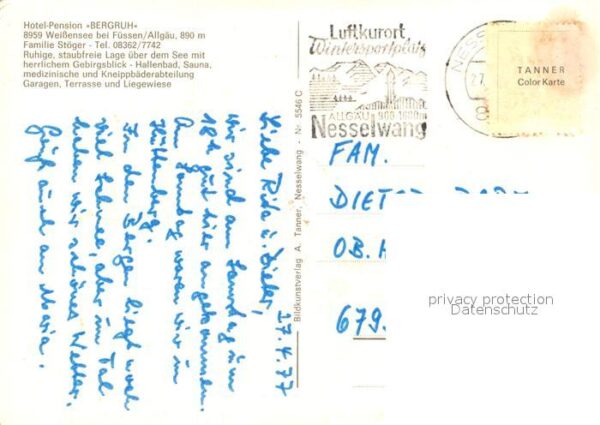 Hotel-Pension «BERGRUH»
8959 Weißensee bei Füssen/Allgäu, 890 m
Familie Stöger - Tel. 08362/7742
Ruhige, staubfreie Lage über dem See mit
herrlichem Gebirgsblick - Hallenbad, Sauna,
medizinische und Kneippbäderabteilung
Garagen, Terrasse und Liegewiese
27.4.77
Liebe Rita u. Dieter,
wir sind am Samstag um
18h gut hier angekommen.
Am Sonntag waren wir in
Hüttenberg.
In den Bergen liegt noch
viel Schnee, aber im Tal
haben wir schönes Wetter.
Gruß auch an Maria.
Bildkunstverlag A. Tanner, Nesselwang - Nr. 5546 C
Luftkurort
Wintersportplatz
ALLGÄU 900 1600m
Nesselwang
NESSE
27.
8
TANNER
Color Karte
FAM.
DIET
OB.
679.
privacy protection
Datenschutz